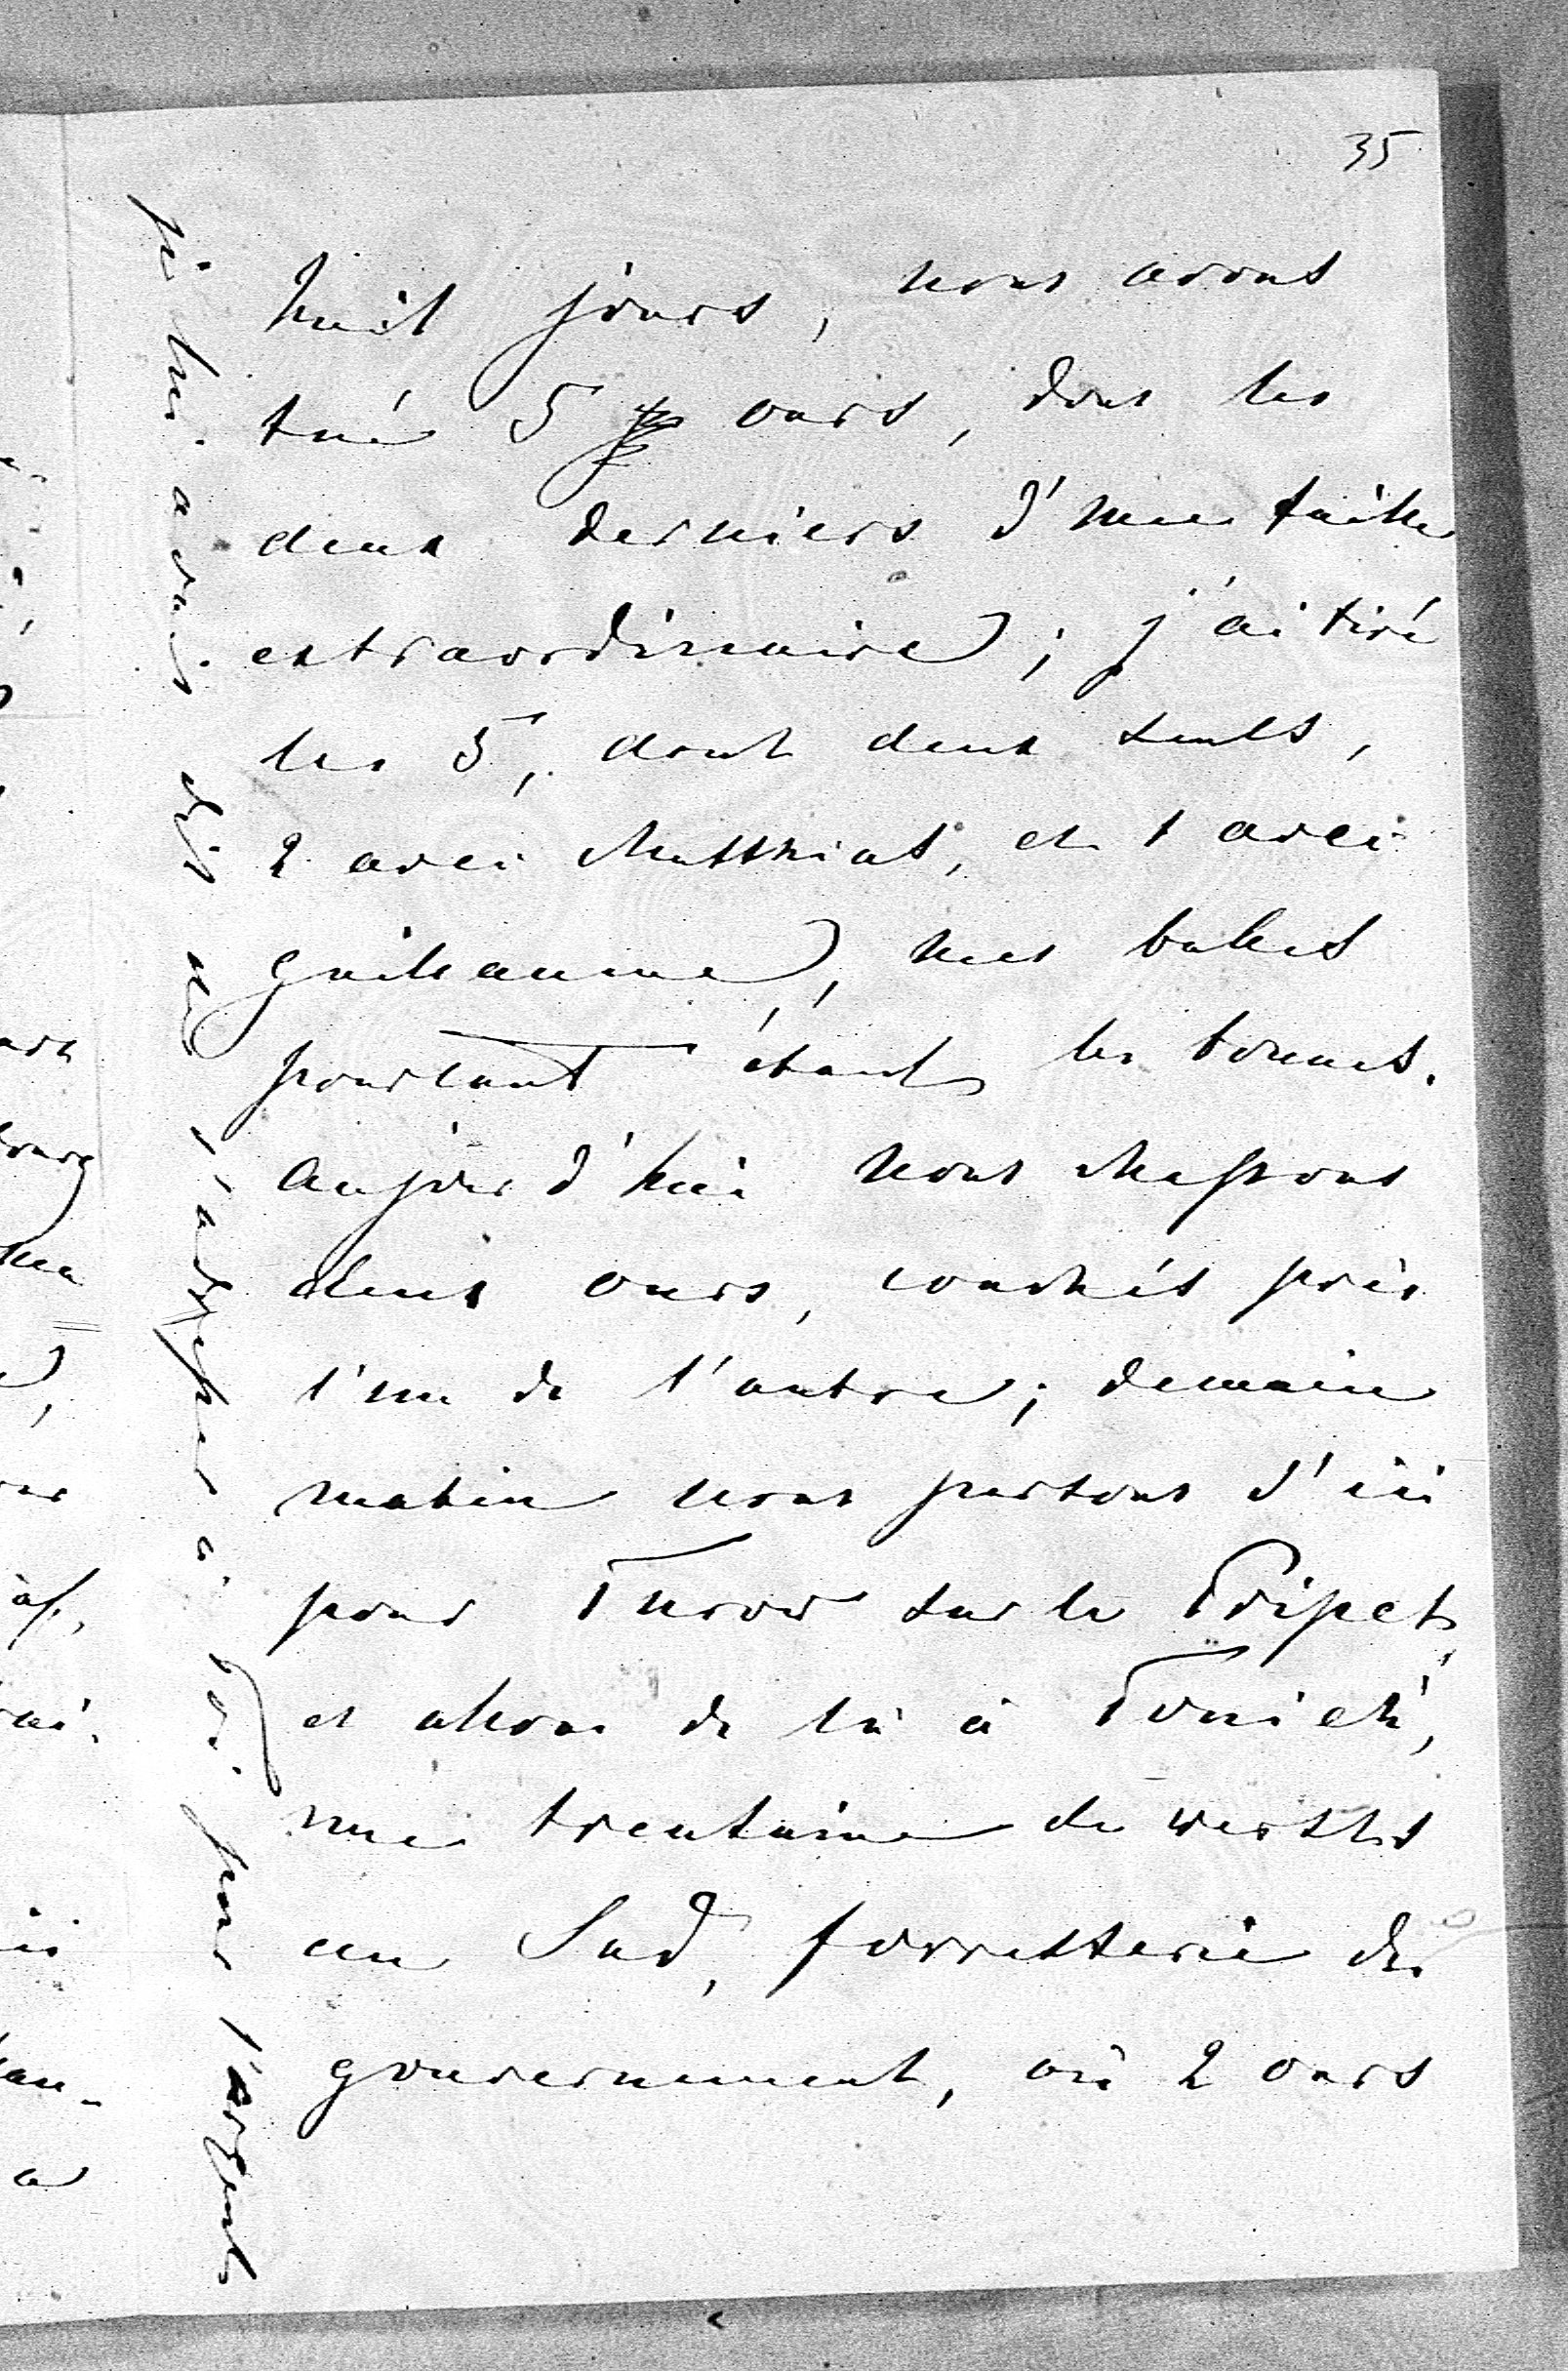 35
huit jours, nous avons
tué 5 ours, dont les
deux derniers d'une taille
extraordinaire; j'ai tiré
les 5, dont deux seuls,
2 avec Matthias, et 1 avec
Guillaume, mes balles
pourtant étant les bonnes.
aujourd'hui nous chassons
deux ours, couchés près
l'un de l'autre; demain
matin nous partons d'ici
pour Turow sur le Pripet,
et allons de là à
une trentaine de werstes
au Sud, forresterie du
gouvernement, où 2 ours
je lui avais dit de s'adresser à toi pour l'argent